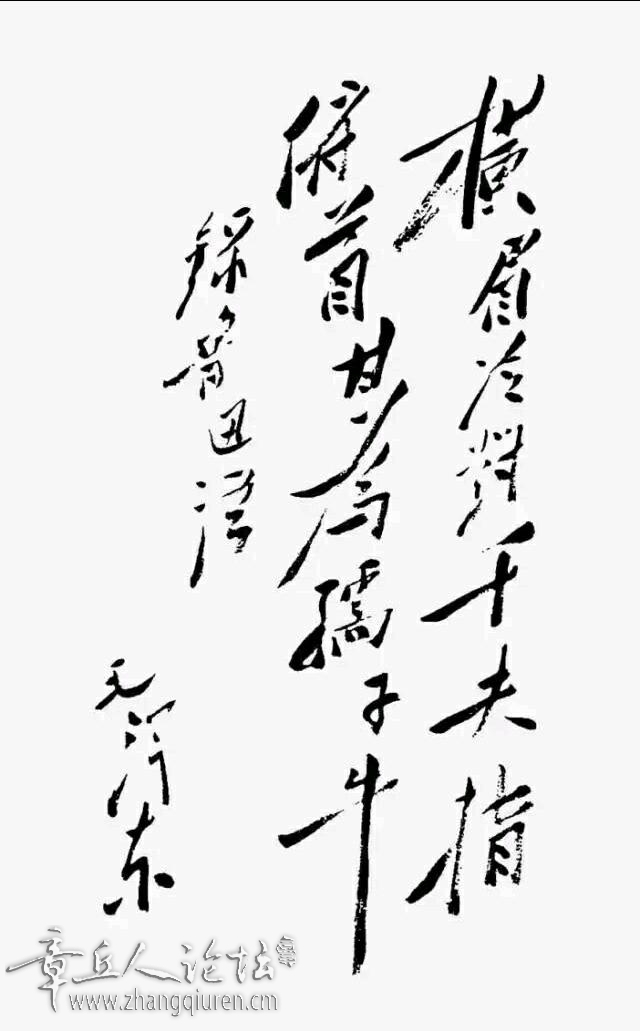 橫眉冷對千夫指
俯首甘为孺子牛
錄魯迅语
毛泽东
章丘人论坛
www.zhangqiuren.cn